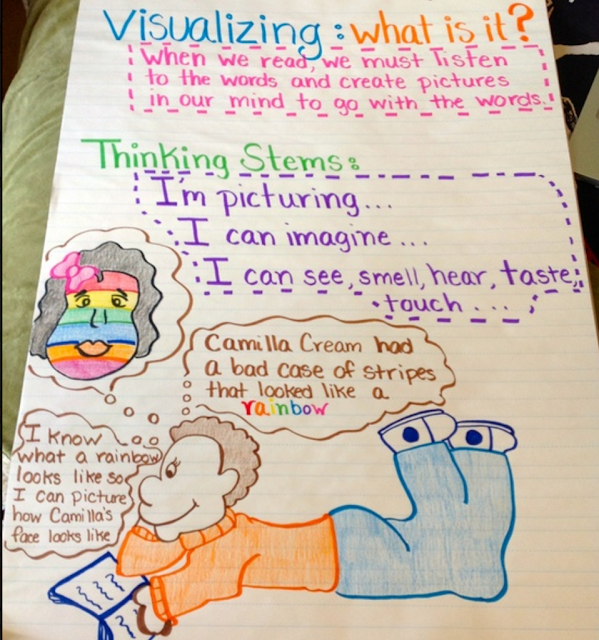 Visualizing: what is it?
When we read, we must listen
to the words and create pictures
in our mind to go with the words.
Thinking Stems:
I'm picturing...
I can imagine...
I can see, smell, hear, taste,
touch....
Camilla Cream had
a bad case of stripes
that looked like a
rainbow
I know
what a rainbow
looks like so
I can picture
how Camilla's
face looks like